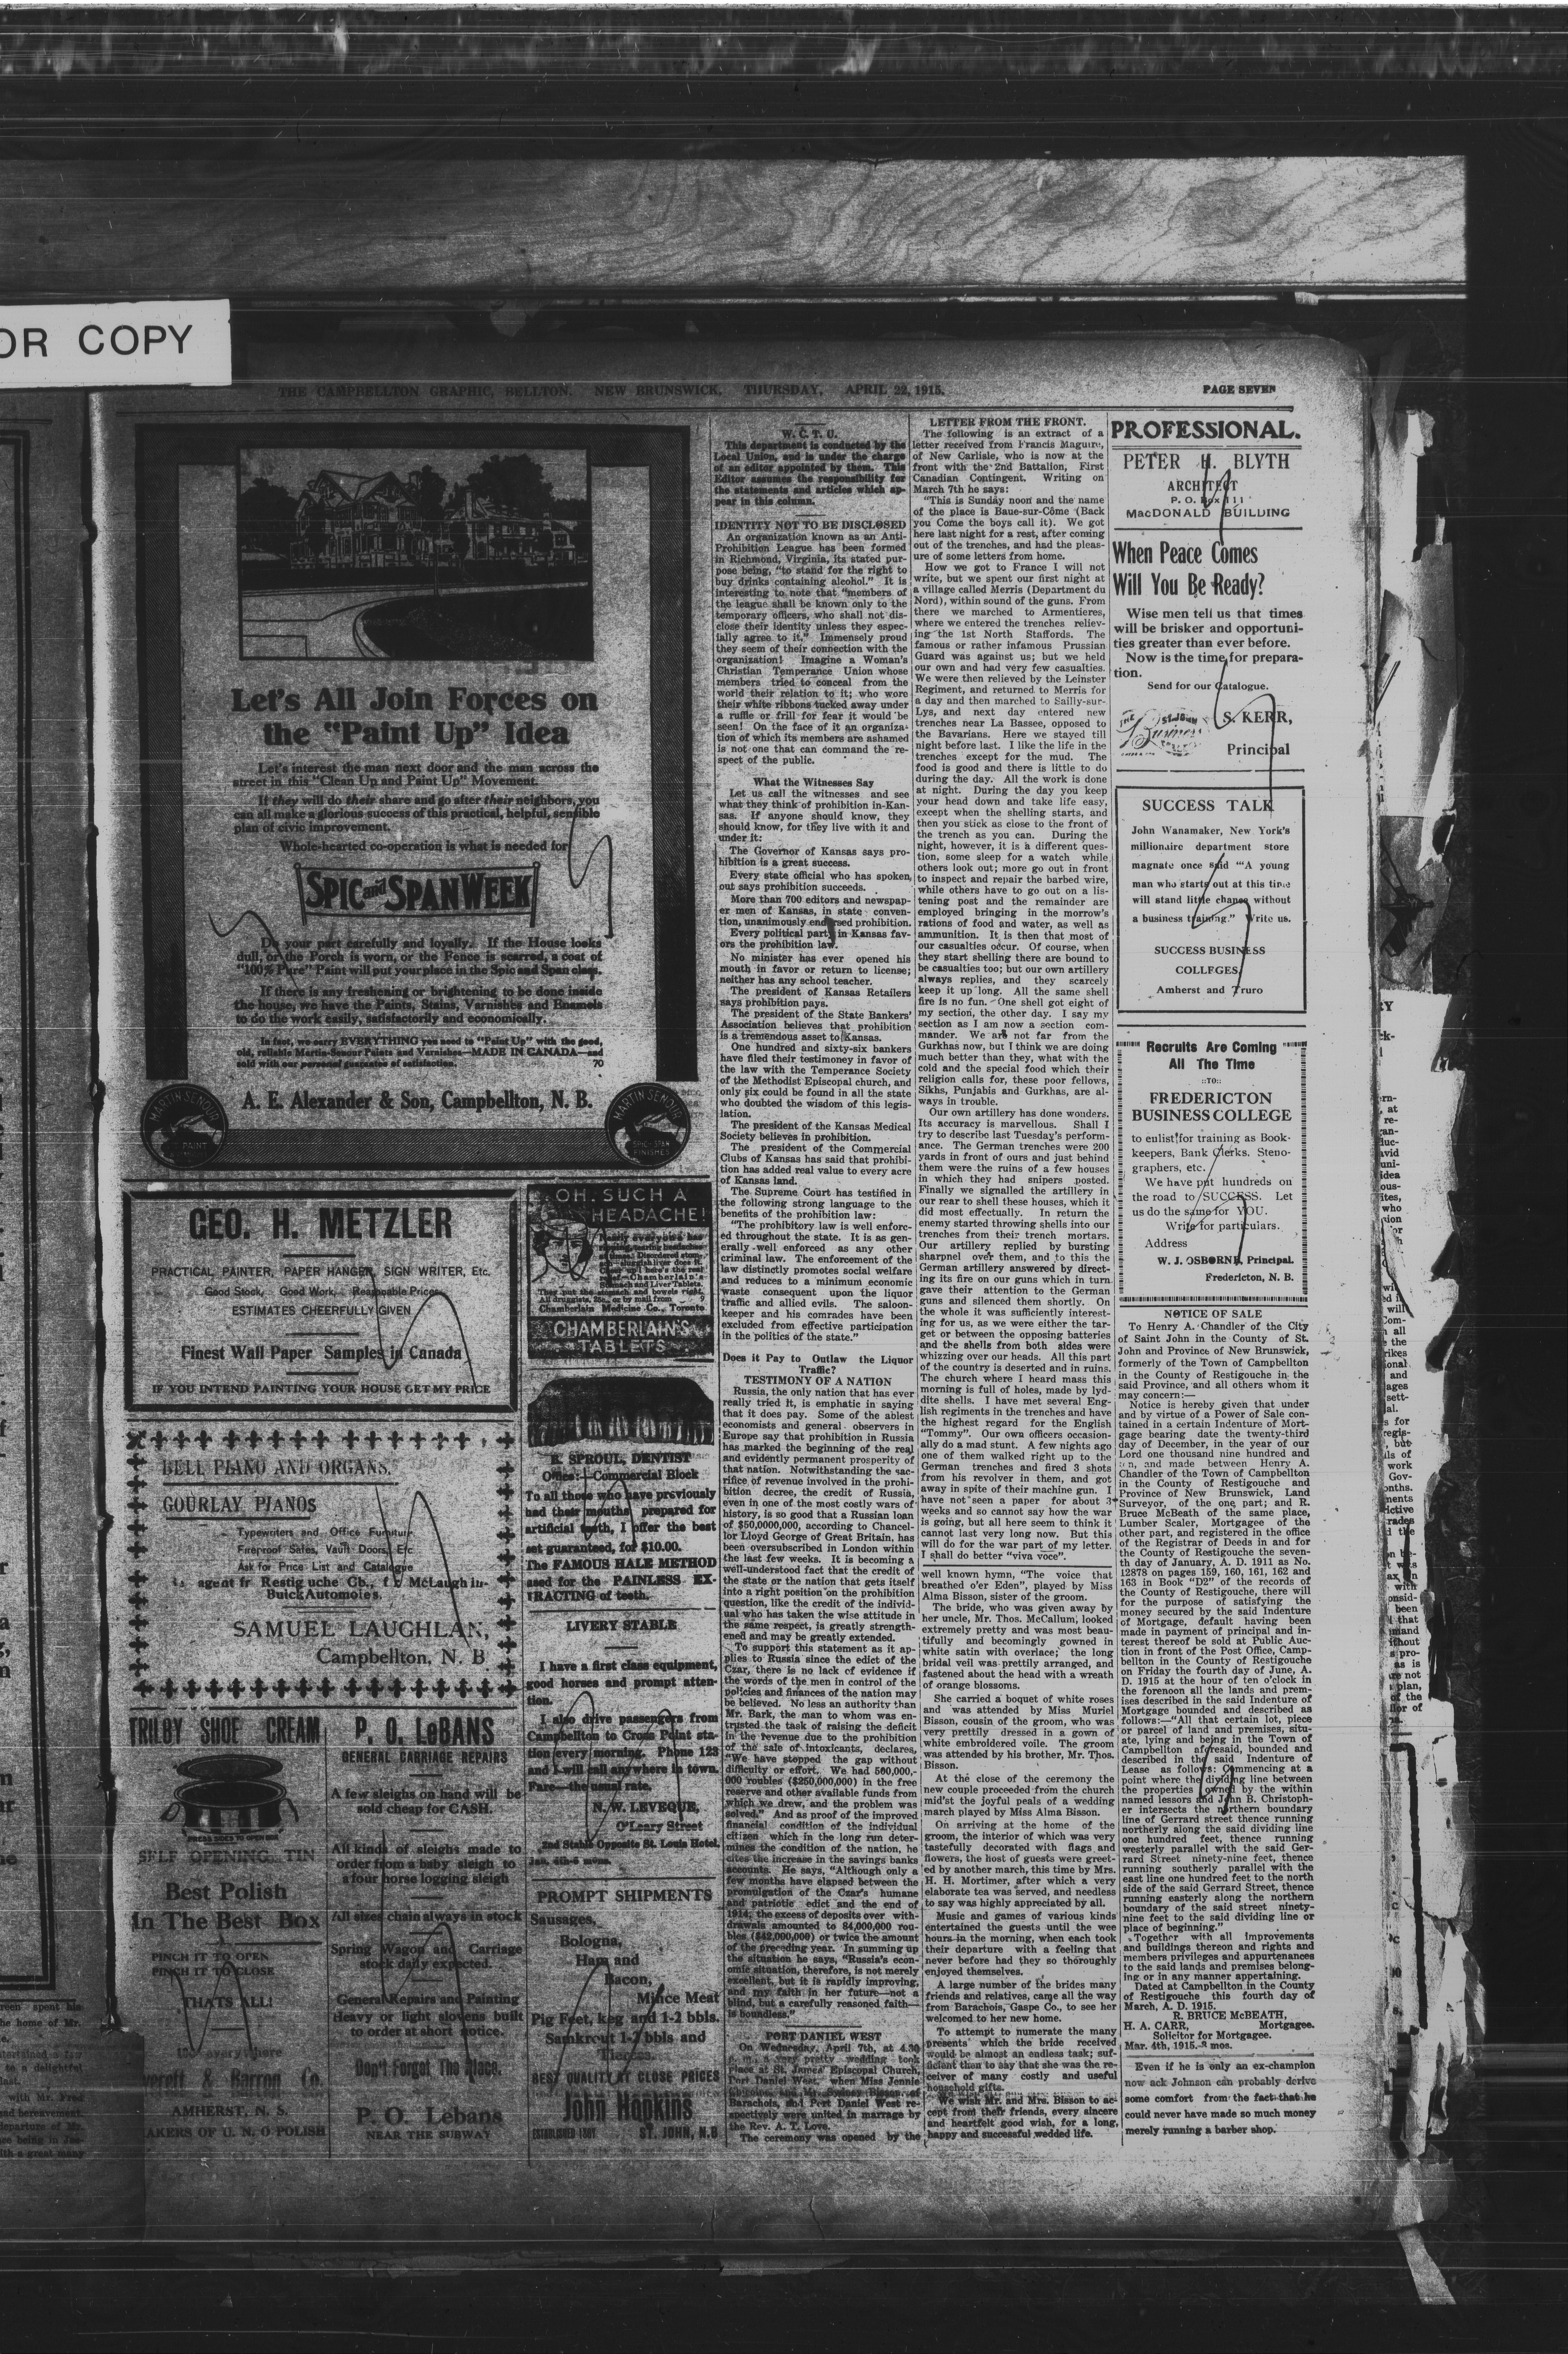 OR COPY
THE CAMPBELLTON GRAPHIC, BELLTON, NEW BRUNSWICK, THURSDAY, APRIL 22, 1915.
PAGE SEVEN
Let's All Join Forces on
the "Paint Up" Idea
Let's interest the man next door and the man across the
street in this "Clean Up and Paint Up" Movement.
If they will do their share and go after their neighbors, you
can all make a glorious success of this practical, helpful, sensible
plan of civic improvement.
Whole-hearted co-operation is what is needed for
SPIC and SPAN WEEK
Do your part carefully and loyally. If the House looks
dull, or the Porch is worn, or the Fence is scarred, a coat of
"100% Pure" Paint will put your place in the Spic and Span class.
If there is any freshening or brightening to be done inside
the house, we have the Paints, Stains, Varnishes and Enamels
to do the work easily, satisfactorily and economically.
In fact, we carry EVERYTHING you need to "Paint Up" with the good,
old, reliable Martin-Senour Paints and Varnishes—MADE IN CANADA—and
sold with our personal guarantee of satisfaction. 70
A. E. Alexander & Son, Campbellton, N. B.
MARTIN-SENOUR
PAINT
MARTIN-SENOUR
SPIC-SPAN
FINISHES
GEO. H. METZLER
PRACTICAL PAINTER, PAPER HANGER, SIGN WRITER, Etc.
Good Stock, Good Work, Reasonable Prices
ESTIMATES CHEERFULLY GIVEN
Finest Wall Paper Samples in Canada
IF YOU INTEND PAINTING YOUR HOUSE GET MY PRICE
BELL PIANO AND ORGANS,
GOURLAY PIANOS
Typewriters and Office Furniture
Fireproof Safes, Vault Doors, Etc
Ask for Price List and Catalogue
agent fr Restig uche Co., McLaugh in-
Buick Automoies.
SAMUEL LAUGHLAN,
Campbellton, N. B
TRILBY SHOE CREAM
PRESS SIDES TO OPEN BOX
SELF OPENING TIN
Best Polish
In The Best Box
PINCH IT TO OPEN
PINCH IT TO CLOSE
THATS ALL!
15c everywhere
& Barron Co.
AMHERST, N. S.
AKERS OF U. N. O POLISH
P. O. LeBANS
GENERAL CARRIAGE REPAIRS
A few sleighs on hand will be
sold cheap for CASH.
All kinds of sleighs made to
order from a baby sleigh to
a four horse logging sleigh
All sizes chain always in stock
Spring Wagon and Carriage
stock daily expected.
General Repairs and Painting
Heavy or light slovens built
to order at short notice.
Don't Forget The Place.
P. O. Lebans
NEAR THE SUBWAY
OH, SUCH A
HEADACHE!
Nearly everyone has
ripping, tearing headaches
at times. Disordered stom-
ach—sluggish liver does it.
Cheer up! here's the real
relief—Chamberlain's
Stomach and Liver Tablets.
They put the stomach and bowels right.
All druggists, 25c., or by mail from 9
Chamberlain Medicine Co., Toronto
CHAMBERLAIN'S
TABLETS
R. SPROUL, DENTIST
Office:—Commercial Block
To all those who have previously
had their mouths prepared for
artificial teeth, I offer the best
set guaranteed, for $10.00.
The FAMOUS HALE METHOD
used for the PAINLESS EX-
TRACTING of teeth.
LIVERY STABLE
I have a first class equipment,
good horses and prompt atten-
tion.
I also drive passengers from
Campbellton to Cross Point sta-
tion every morning. Phone 123
and I will call anywhere in town.
Fare—the usual rate.
N. W. LEVEQUE,
O'Leary Street
2nd Stable Opposite St. Louis Hotel.
PROMPT SHIPMENTS
Sausages,
Bologna,
Ham and
Bacon,
Mince Meat
Pig Feet, keg and 1-2 bbls.
Samkrout 1-2 bbls and
Tierces.
BEST QUALITY AT CLOSE PRICES
John Hopkins
ESTABLISHED 1867 ST. JOHN, N.B
W. C. T. U.
This department is conducted by the
Local Union, and is under the charge
of an editor appointed by them. This
Editor assumes the responsibility for
the statements and articles which ap-
pear in this column.
IDENTITY NOT TO BE DISCLOSED
An organization known as an Anti-
Prohibition League has been formed
in Richmond, Virginia, its stated pur-
pose being, "to stand for the right to
buy drinks containing alcohol." It is
interesting to note that "members of
the league shall be known only to the
temporary officers, who shall not dis-
close their identity unless they espec-
ially agree to it." Immensely proud
they seem of their connection with the
organization! Imagine a Woman's
Christian Temperance Union whose
members tried to conceal from the
world their relation to it; who wore
their white ribbons tucked away under
a ruffle or frill for fear it would be
seen! On the face of it an organiza-
tion of which its members are ashamed
is not one that can command the re-
spect of the public.
What the Witnesses Say
Let us call the witnesses and see
what they think of prohibition in-Kan-
sas. If anyone should know, they
should know, for they live with it and
under it:
The Governor of Kansas says pro-
hibition is a great success.
Every state official who has spoken,
out says prohibition succeeds.
More than 700 editors and newspap-
er men of Kansas, in state conven-
tion, unanimously endorsed prohibition.
Every political party in Kansas fav-
ors the prohibition law.
No minister has ever opened his
mouth in favor or return to license;
neither has any school teacher.
The president of Kansas Retailers
says prohibition pays.
The president of the State Bankers'
Association believes that prohibition
is a tremendous asset to Kansas.
One hundred and sixty-six bankers
have filed their testimoney in favor of
the law with the Temperance Society
of the Methodist Episcopal church, and
only six could be found in all the state
who doubted the wisdom of this legis-
lation.
The president of the Kansas Medical
Society believes in prohibition.
The president of the Commercial
Clubs of Kansas has said that prohibi-
tion has added real value to every acre
of Kansas land.
The Supreme Court has testified in
the following strong language to the
benefits of the prohibition law:
"The prohibitory law is well enforc-
ed throughout the state. It is as gen-
erally well enforced as any other
criminal law. The enforcement of the
law distinctly promotes social welfare
and reduces to a minimum economic
waste consequent upon the liquor
traffic and allied evils. The saloon-
keeper and his comrades have been
excluded from effective participation
in the politics of the state."
Does it Pay to Outlaw the Liquor
Traffic?
TESTIMONY OF A NATION
Russia, the only nation that has ever
really tried it, is emphatic in saying
that it does pay. Some of the ablest
economists and general observers in
Europe say that prohibition in Russia
has marked the beginning of the real
and evidently permanent prosperity of
that nation. Notwithstanding the sac-
rifice of revenue involved in the prohi-
bition decree, the credit of Russia,
even in one of the most costly wars of
history, is so good that a Russian loan
of $50,0000,000, according to Chancel-
lor Lloyd George of Great Britain, has
been oversubscribed in London within
the last few weeks. It is becoming a
well-understood fact that the credit of
the state or the nation that gets itself
into a right position on the prohibition
question, like the credit of the individ-
ual who has taken the wise attitude in
the same respect, is greatly strength-
ened and may be greatly extended.
To support this statement as it ap-
plies to Russia since the edict of the
Czar, there is no lack of evidence if
the words of the men in control of the
policies and finances of the nation may
be believed. No less an authority than
Mr. Bark, the man to whom was en-
trusted the task of raising the deficit
in the revenue due to the prohibition
of the sale of intoxicants, declares,
"We have stopped the gap without
difficulty or effort. We had 560,000,-
000 roubles ($250,000,000) in the free
reserve and other available funds from
which we drew, and the problem was
solved." And as proof of the improved
financial condition of the individual
citizen which in the long run deter-
mines the condition of the nation, he
cites the increase in the savings banks
accounts. He says, "Although only a
few months have elapsed between the
promulgation of the Czar's humane
and patriotic edict and the end of
1914, the excess of deposits over with-
drawals amounted to 84,000,000 rou-
bles ($42,000,000) or twice the amount
of the preceding year. In summing up
the situation he says, "Russia's econ-
omic situation, therefore, is not merely
excellent, but it is rapidly improving,
and my faith in her future—not a
blind, but a carefully reasoned faith—
is boundless."
PORT DANIEL WEST
On Wednesday, April 7th, at 4.30
p. m., a very pretty wedding took
place at St. James' Episcopal Church,
Port Daniel West, when Miss Jennie
and Mr. Sydney Bisson, of
Barachois, and Port Daniel West re-
spectively were united in marrage by
the Rev. A. T. Love.
The ceremony was opened by the
LETTER FROM THE FRONT.
The following is an extract of a
letter received from Francis Maguire,
of New Carlisle, who is now at the
front with the 2nd Battalion, First
Canadian Contingent. Writing on
March 7th he says:
"This is Sunday noon and the name
of the place is Baue-sur-Côme (Back
you Come the boys call it). We got
here last night for a rest, after coming
out of the trenches, and had the pleas-
ure of some letters from home.
How we got to France I will not
write, but we spent our first night at
a village called Merris (Department du
Nord), within sound of the guns. From
there we marched to Armentieres,
where we entered the trenches reliev-
ing the 1st North Staffords. The
famous or rather infamous Prussian
Guard was against us; but we held
our own and had very few casualties.
We were then relieved by the Leinster
Regiment, and returned to Merris for
a day and then marched to Sailly-sur-
Lys, and next day entered new
trenches near La Bassee, opposed to
the Bavarians. Here we stayed till
night before last. I like the life in the
trenches except for the mud. The
food is good and there is little to do
during the day. All the work is done
at night. During the day you keep
your head down and take life easy,
except when the shelling starts, and
then you stick as close to the front of
the trench as you can. During the
night, however, it is a different ques-
tion, some sleep for a watch while
others look out; more go out in front
to inspect and repair the barbed wire,
while others have to go out on a lis-
tening post and the remainder are
employed bringing in the morrow's
rations of food and water, as well as
ammunition. It is then that most of
our casualties occur. Of course, when
they start shelling there are bound to
be casualties too; but our own artillery
always replies, and they scarcely
keep it up long. All the same shell
fire is no fun. One shell got eight of
my section, the other day. I say my
section as I am now a section com-
mander. We are not far from the
Gurkhas now, but I think we are doing
much better than they, what with the
cold and the special food which their
religion calls for, these poor fellows,
Sikhs, Punjabis and Gurkhas, are al-
ways in trouble.
Our own artillery has done wonders.
Its accuracy is marvellous. Shall I
try to describe last Tuesday's perform-
ance. The German trenches were 200
yards in front of ours and just behind
them were the ruins of a few houses
in which they had snipers posted.
Finally we signalled the artillery in
our rear to shell these houses, which it
did most effectually. In return the
enemy started throwing shells into our
trenches from their trench mortars.
Our artillery replied by bursting
sharpnel over them, and to this the
German artillery answered by direct-
ing its fire on our guns which in turn
gave their attention to the German
guns and silenced them shortly. On
the whole it was sufficiently interest-
ing for us, as we were either the tar-
get or between the opposing batteries
and the shells from both sides were
whizzing over our heads. All this part
of the country is deserted and in ruins.
The church where I heard mass this
morning is full of holes, made by lyd-
dite shells. I have met several Eng-
lish regiments in the trenches and have
the highest regard for the English
"Tommy". Our own officers occasion-
ally do a mad stunt. A few nights ago
one of them walked right up to the
German trenches and fired 3 shots
from his revolver in them, and got
away in spite of their machine gun. I
have not seen a paper for about 3
weeks and so cannot say how the war
is going, but all here seem to think it
cannot last very long now. But this
will do for the war part of my letter.
I shall do better "viva voce".
well known hymn, "The voice that
breathed o'er Eden", played by Miss
Alma Bisson, sister of the groom.
The bride, who was given away by
her uncle, Mr. Thos. McCallum, looked
extremely pretty and was most beau-
tifully and becomingly gowned in
white satin with overlace; the long
bridal veil was prettily arranged, and
fastened about the head with a wreath
of orange blossoms.
She carried a boquet of white roses
and was attended by Miss Muriel
Bisson, cousin of the groom, who was
very prettily dressed in a gown of
white embroidered voile. The groom
was attended by his brother, Mr. Thos.
Bisson.
At the close of the ceremony the
new couple proceeded from the church
mid'st the joyful peals of a wedding
march played by Miss Alma Bisson.
On arriving at the home of the
groom, the interior of which was very
tastefully decorated with flags and
flowers, the host of guests were greet-
ed by another march, this time by Mrs.
H. H. Mortimer, after which a very
elaborate tea was served, and needless
to say was highly appreciated by all.
Music and games of various kinds
entertained the guests until the wee
hours in the morning, when each took
their departure with a feeling that
never before had they so thoroughly
enjoyed themselves.
A large number of the brides many
friends and relatives, came all the way
from Barachois, Gaspe Co., to see her
welcomed to her new home.
To attempt to numerate the many
presents which the bride received
would be almost an endless task; suf-
ficient than to say that she was the re-
ceiver of many costly and useful
household gifts.
We wish Mr. and Mrs. Bisson to ac-
cept from their friends, every sincere
and heartfelt good wish, for a long,
happy and successful wedded life.
PROFESSIONAL.
PETER H. BLYTH
ARCHITECT
P. O. Box 111
MacDONALD BUILDING
When Peace Comes
Will You Be Ready?
Wise men tell us that times
will be brisker and opportuni-
ties greater than ever before.
Now is the time for prepara-
tion.
Send for our Catalogue.
THE ST. JOHN
Business
S. KERR,
Principal
SUCCESS TALK
John Wanamaker, New York's
millionaire department store
magnate once said "A young
man who starts out at this time
will stand little chance without
a business training." Write us.
SUCCESS BUSINESS
COLLFGES,
Amherst and Truro
Recruits Are Coming
All The Time
::TO::
FREDERICTON
BUSINESS COLLEGE
to enlist for training as Book-
keepers, Bank Clerks. Steno-
graphers, etc.
We have put hundreds on
the road to SUCCESS. Let
us do the same for YOU.
Write for particulars.
Address
W. J. OSBORNE, Principal.
Fredericton, N. B.
NOTICE OF SALE
To Henry A. Chandler of the City
of Saint John in the County of St.
John and Province of New Brunswick,
formerly of the Town of Campbellton
in the County of Restigouche in the
said Province, and all others whom it
may concern:—
Notice is hereby given that under
and by virtue of a Power of Sale con-
tained in a certain Indenture of Mort-
gage bearing date the twenty-third
day of December, in the year of our
Lord one thousand nine hundred and
ten, and made between Henry A.
Chandler of the Town of Campbellton
in the County of Restigouche and
Province of New Brunswick, Land
Surveyor, of the one part; and R.
Bruce McBeath of the same place,
Lumber Scaler, Mortgagee of the
other part, and registered in the office
of the Registrar of Deeds in and for
the County of Restigouche the seven-
th day of January, A. D. 1911 as No.
12878 on pages 159, 160, 161, 162 and
163 in Book "D2" of the records of
the County of Restigouche, there will
for the purpose of satisfying the
money secured by the said Indenture
of Mortgage, default having been
made in payment of principal and in-
terest thereof be sold at Public Auc-
tion in front of the Post Office, Camp-
bellton in the County of Restigouche
on Friday the fourth day of June, A.
D. 1915 at the hour of ten o'clock in
the forenoon all the lands and prem-
ises described in the said Indenture of
Mortgage bounded and described as
follows:—"All that certain lot, piece
or parcel of land and premises, situ-
ate, lying and being in the Town of
Campbellton aforesaid, bounded and
described in the said Indenture of
Lease as follows: Commencing at a
point where the dividing line between
the properties owned by the within
named lessors and John B. Christoph-
er intersects the northern boundary
line of Gerrard street thence running
northerly along the said dividing line
one hundred feet, thence running
westerly parallel with the said Ger-
rard Street ninety-nine feet, thence
running southerly parallel with the
east line one hundred feet to the north
side of the said Gerrard Street, thence
running easterly along the northern
boundary of the said street ninety-
nine feet to the said dividing line or
place of beginning."
Together with all improvements
and buildings thereon and rights and
members privileges and appurtenances
to the said lands and premises belong-
ing or in any manner appertaining.
Dated at Campbellton in the County
of Restigouche this fourth day of
March, A. D. 1915.
R. BRUCE McBEATH,
Mortgagee.
H. A. CARR,
Solicitor for Mortgagee.
Mar. 4th, 1915.-3 mos.
Even if he is only an ex-champion
now ack Johnson can probably derive
some comfort from the fact that he
could never have made so much money
merely running a barber shop.